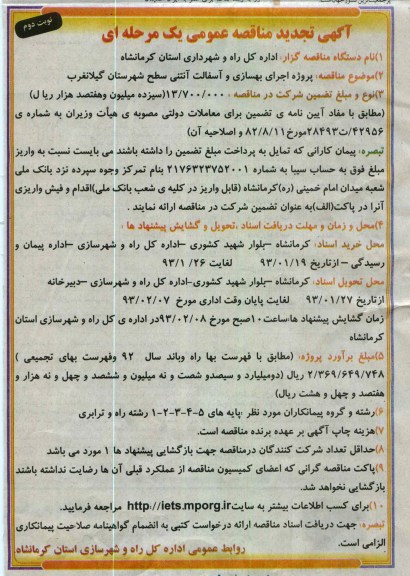 نوبت دوم
آگهی تجدید مناقصه عمومی یک مرحله ای
۱)نام دستگاه مناقصه گزار: اداره کل راه و شهرداری استان کرمانشاه
۲)موضوع مناقصه: پروژه اجرای بهسازی و آسفالت آنتنی سطح شهرستان گیلانغرب
۳)نوع و مبلغ تضمین شرکت در مناقصه : ۱۳/۷۰۰/۰۰۰(سیزده میلیون وهفتصد هزار ریا ل)
(مطابق با مفاد آیین نامه ی تضمین برای معاملات دولتی مصوبه ی هیأت وزیران به شماره ی
۴۲۹۵۶/ت۲۸۴۹۳مورخ۸۲/۸/۱۱ و اصلاحیه آن)
تبصره: پیمان کارانی که تمایل به پرداخت مبلغ تضمین را داشته باشند می بایست نسبت به واریز
مبلغ فوق به حساب سیبا به شماره ۲۱۷۶۴۳۲۳۷۵۲۰۰۱ بنام تمرکز وجوه سپرده نزد بانک ملی
شعبه میدان امام خمینی (ره)کرمانشاه (قابل واریز در کلیه ی شعب بانک ملی)اقدام و فیش واریزی
آنرا در پاکت(الف)به عنوان تضمین شرکت در مناقصه ارائه نمایند .
۴)محل و زمان و مهلت دریافت اسناد ،تحویل و گشایش پیشنهاد ها :
محل خرید اسناد: کرمانشاه –بلوار شهید کشوری –اداره کل راه و شهرسازی –اداره پیمان و
رسیدگی – از تاریخ ۹۳/۰۱/۱۹ لغایت ۹۳/۱ /۲۶
محل تحویل اسناد: کرمانشاه –بلوار شهید کشوری-اداره کل راه و شهرسازی –دبیرخانه
ازتاریخ ۹۳/۰۱/۲۷ لغایت پایان وقت اداری مورخ ۹۳/۰۲/۰۷
زمان گشایش پیشنهاد ها:ساعت۱۰صبح مورخ ۹۳/۰۲/۰۸در اداره ی کل راه و شهرسازی استان
کرمانشاه
۵)مبلغ برآورد پروژه: (مطابق با فهرست بها راه وباند سال ۹۲ وفهرست بهای تجمیعی )
۲/۳۶۹/۶۴۹/۷۴۸ ریال (دومیلیارد و سیصدو شصت و نه میلیون و ششصد و چهل و نه هزار و
هفتصد و چهل و هشت ریال)
۶)رشته و گروه پیمانکاران مورد نظر :پایه های ۵-۴-۳-۲-۱ رشته راه و ترابری
۷)هزینه چاپ آگهی بر عهده برنده مناقصه است.
۸)حداقل تعداد شرکت کنندگان درمناقصه جهت بازگشایی پیشنهاد ها ۱ مورد می باشد
۹)پاکت مناقصه گرانی که اعضای کمیسیون مناقصه از عملکرد قبلی آن ها رضایت نداشته باشند
بازگشایی نخواهد شد.
۱۰)برای کسب اطلاعات بیشتر به سایت http://iets.mporg.ir مراجعه فرمایید.
تبصره: جهت دریافت اسناد مناقصه ارائه درخواست کتبی به انضمام گواهینامه صلاحیت پیمانکاری
الزامی است.
روابط عمومی اداره کل راه و شهرسازی استان کرمانشاه